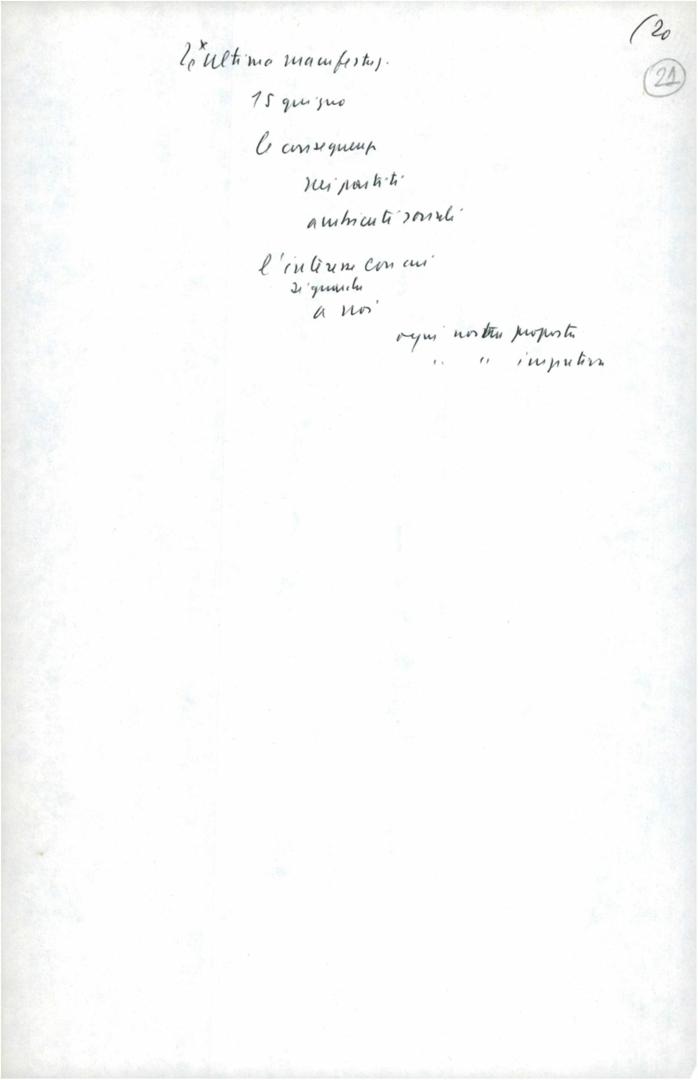 (20
21
L'ultima manifestaz.
15 giugno
le conseguenze
nei partiti
ambienti sociali
l'interesse con cui
si guarda
a noi
ogni nostra proposta
" " iniziativa